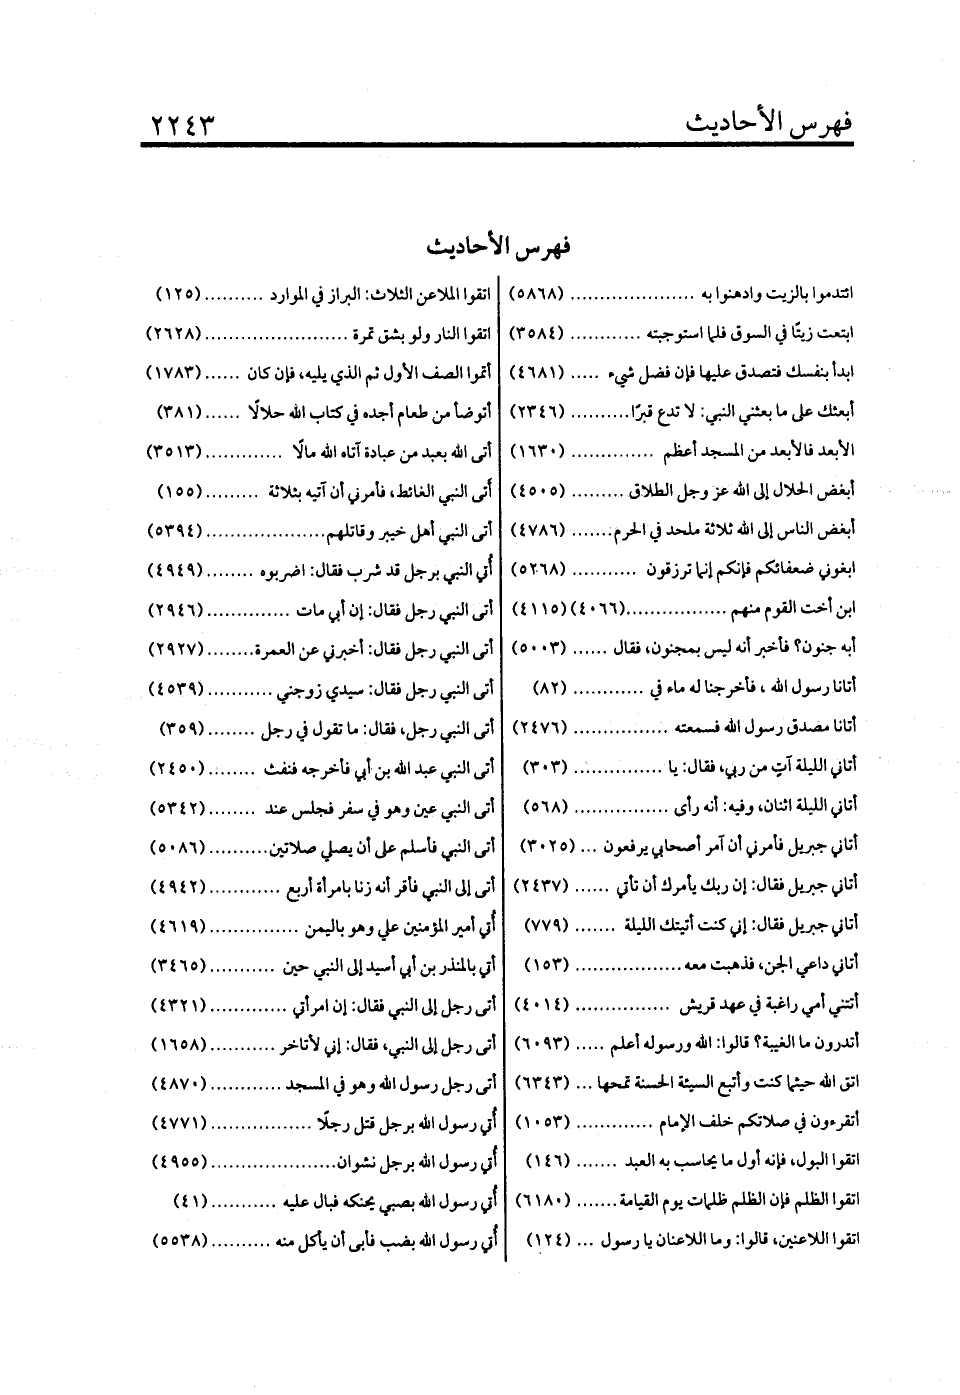 فهرس الأحاديث ٢٢٤٣
فهرس الأحاديث
ائتدموا بالزيت وادهنوا به ..................... (٥٨٦٨)
ابتعت زيتًا في السوق فلما استوجبته ............ (٣٥٨٤)
ابدأ بنفسك فتصدق عليها فإن فضل شيء ..... (٤٦٨١)
أبعثك على ما بعثني النبي: لا تدع قبرًا.......... (٢٣٤٦)
الأبعد فالأبعد من المسجد أعظم .............. (١٦٣٠)
أبغض الحلال إلى الله عز وجل الطلاق ......... (٤٥٠٥)
أبغض الناس إلى الله ثلاثة ملحد في الحرم....... (٤٧٨٦)
ابغوني ضعفائكم فإنكم إنما ترزقون ........... (٥٢٦٨)
ابن أخت القوم منهم .................(٤٠٦٦)(٤١١٥)
أبه جنون؟ فأخبر أنه ليس بمجنون، فقال ...... (٥٠٠٣)
أتانا رسول الله ، فأخرجنا له ماء في ............ (٨٢)
أتانا مصدق رسول الله فسمعته ................ (٢٤٧٦)
أتاني الليلة آتٍ من ربي، فقال: يا ............... (٣٠٣)
أتاني الليلة اثنان، وفيه: أنه رأى ................ (٥٦٨)
أتاني جبريل فأمرني أن آمر أصحابي يرفعون ... (٣٠٢٥)
أتاني جبريل فقال: إن ربك يأمرك أن تأتي ...... (٢٤٣٧)
أتاني جبريل فقال: إني كنت أتيتك الليلة ....... (٧٧٩)
أتاني داعي الجن، فذهبت معه.................. (١٥٣)
أتتني أمي راغبة في عهد قريش ................ (٤٠١٤)
أتدرون ما الغيبة؟ قالوا: الله ورسوله أعلم ..... (٦٠٩٣)
اتق الله حيثما كنت وأتبع السيئة الحسنة تمحها ... (٦٣٤٣)
أتقرءون في صلاتكم خلف الإمام ............. (١٠٥٣)
اتقوا البول، فإنه أول ما يحاسب به العبد ....... (١٤٦)
اتقوا الظلم فإن الظلم ظلمات يوم القيامة....... (٦١٨٠)
اتقوا اللاعنين، قالوا: وما اللاعنان يا رسول ... (١٢٤)
اتقوا الملاعن الثلاث: البراز في الموارد ..........(١٢٥)
اتقوا النار ولو بشق تمرة ........................(٢٦٢٨)
أتموا الصف الأول ثم الذي يليه، فإن كان ......(١٧٨٣)
أتوضأ من طعام أجده في كتاب الله حلالًا ......(٣٨١)
أتى الله بعبد من عبادة آتاه الله مالًا .............(٣٥١٣)
أتى النبي الغائط، فأمرني أن آتيه بثلاثة .........(١٥٥)
أتى النبي أهل خيبر وقاتلهم....................(٥٣٩٤)
أُتي النبي برجل قد شرب فقال: اضربوه ........(٤٩٤٩)
أتى النبي رجل فقال: إن أبي مات ..............(٢٩٤٦)
أتى النبي رجل فقال: أخبرني عن العمرة........(٢٩٢٧)
أتى النبي رجل فقال: سيدي زوجني ...........(٤٥٣٩)
أتى النبي رجل، فقال: ما تقول في رجل ........(٣٥٩)
أتى النبي عبد الله بن أبي فأخرجه فنفث ........(٢٤٥٠)
أتى النبي عين وهو في سفر فجلس عند ........(٥٣٤٢)
أتى النبي فأسلم على أن يصلي صلاتين..........(٥٠٨٦)
أتى إلى النبي فأقر أنه زنا بامرأة أربع ............(٤٩٤٢)
أُتي أمير المؤمنين علي وهو باليمن ...............(٤٦١٩)
أتي بالمنذر بن أبي أسيد إلى النبي حين ...........(٣٤٦٥)
أتى رجل إلى النبي فقال: إن امرأتي .............(٤٣٢١)
أتى رجل إلى النبي، فقال: إني لأتاخر ...........(١٦٥٨)
أتى رجل رسول الله وهو في المسجد ............(٤٨٧٠)
أُتي رسول الله برجل قتل رجلًا .................(٤٧٧١)
أُتي رسول الله برجل نشوان.....................(٤٩٥٥)
أُتي رسول الله بصبي يحنكه فبال عليه ...........(٤١)
أُتي رسول الله بضب فأبى أن يأكل منه ..........(٥٥٣٨)